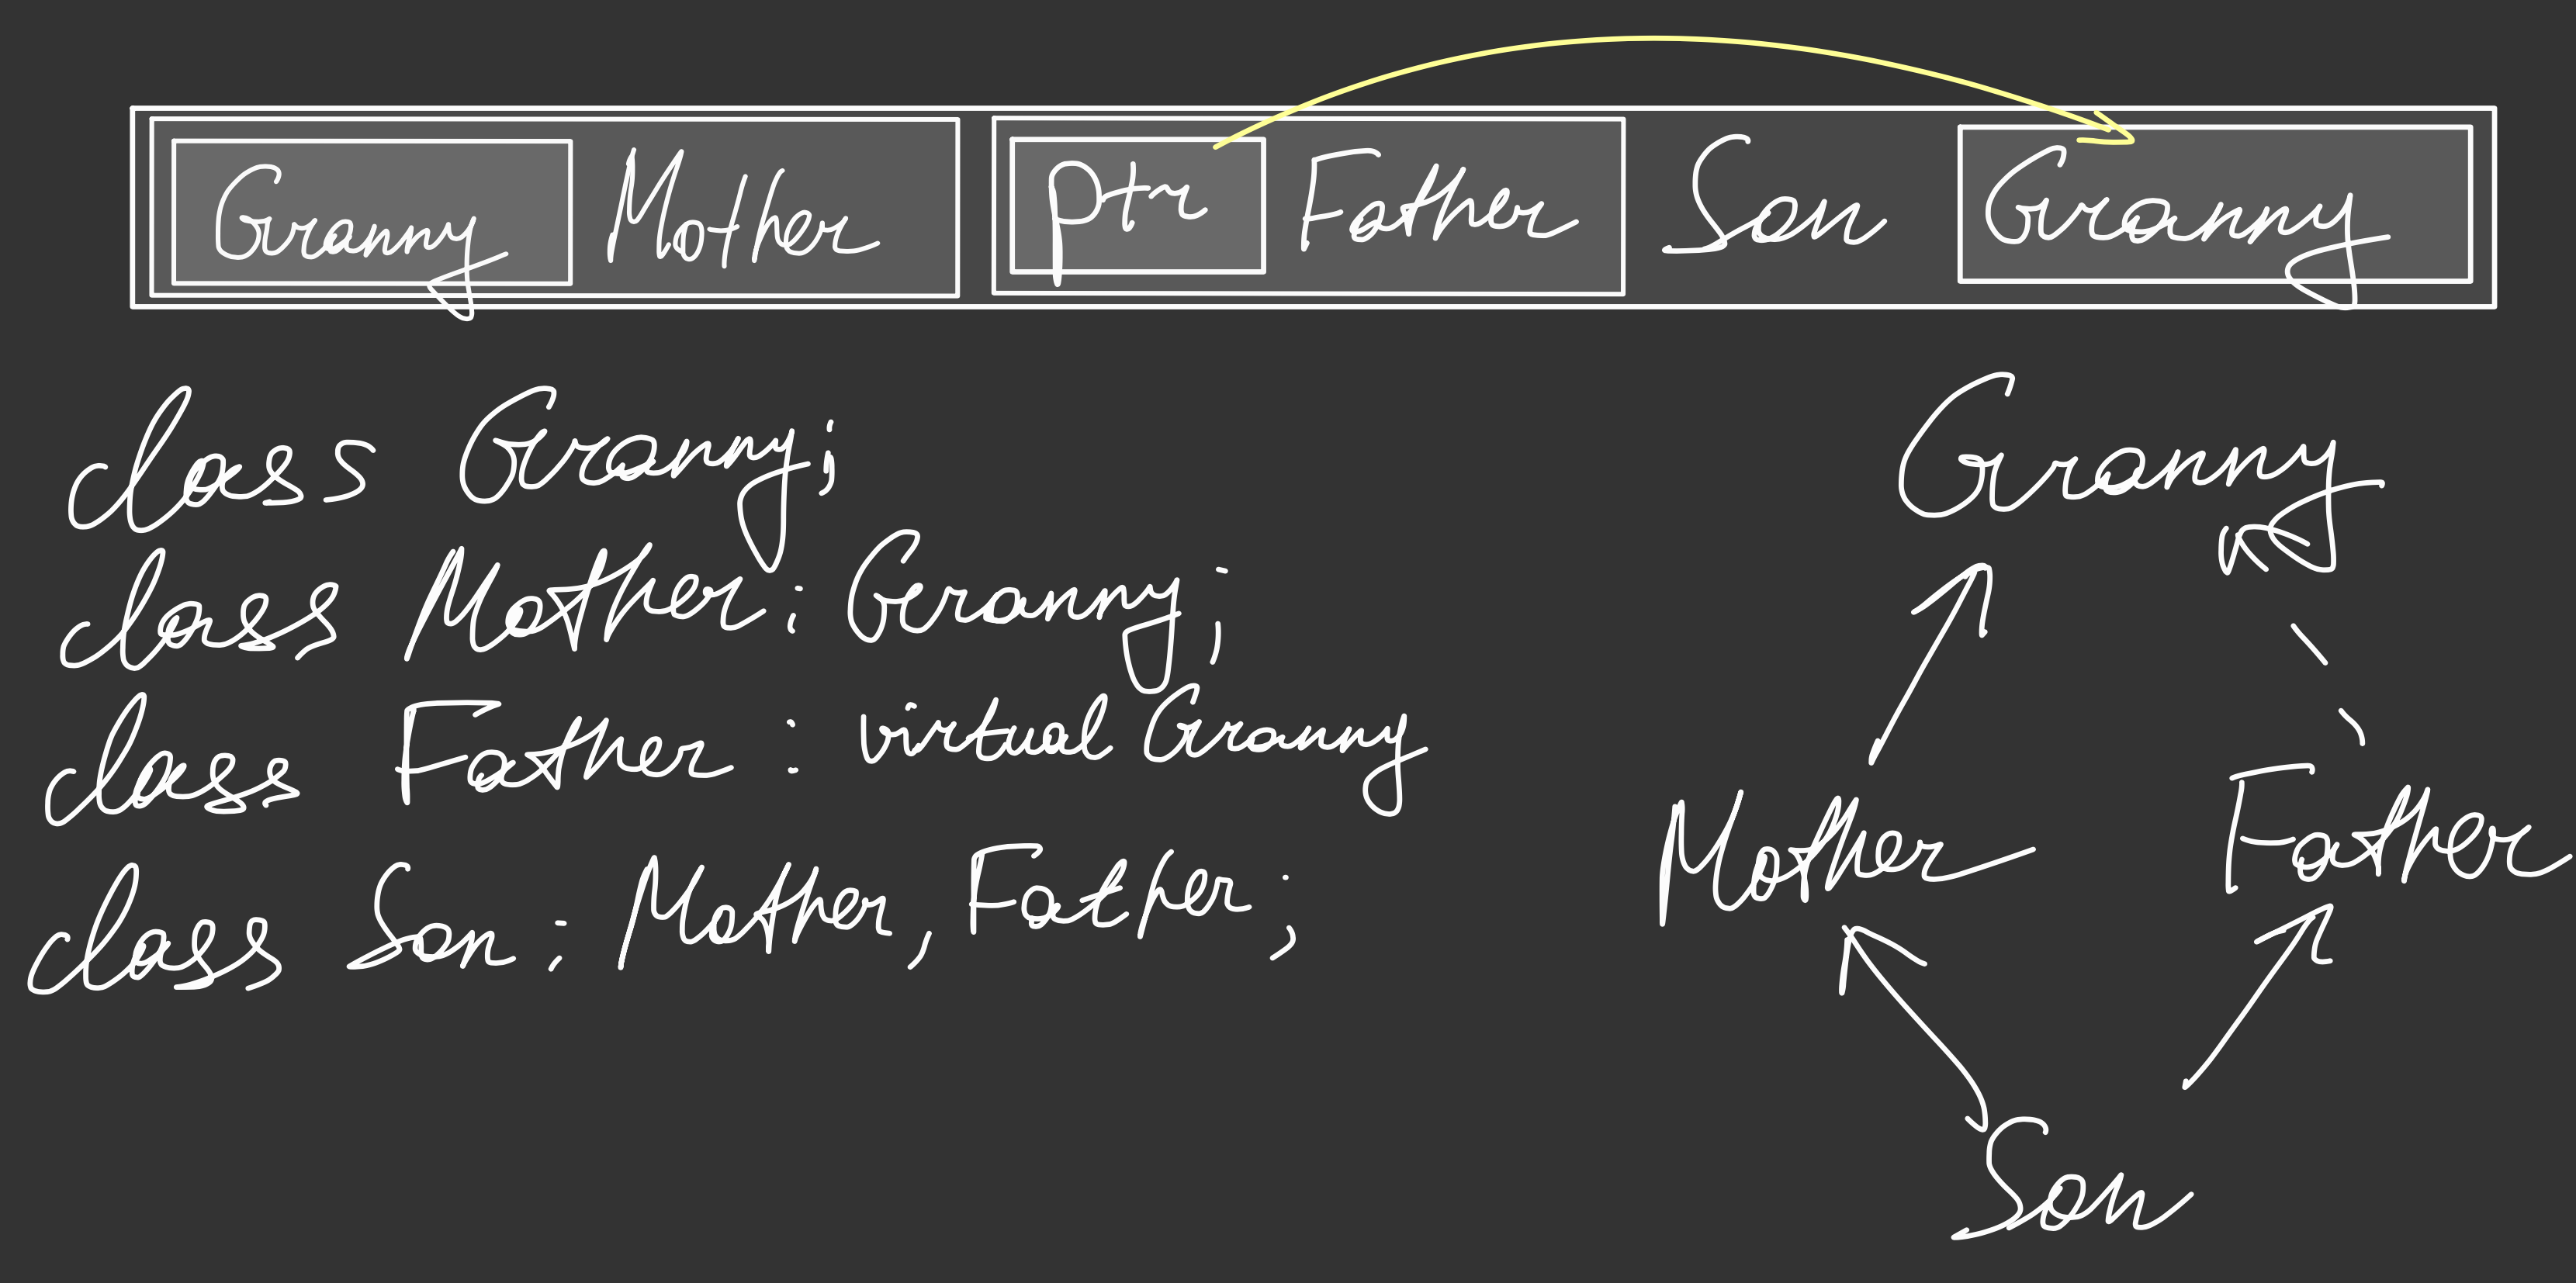 Granny Mother ptr Father Son Granny
class Granny;
class Mother : Granny;
class Father : virtual Granny
class Son : Mother, Father;
Granny
Mother Father
Son